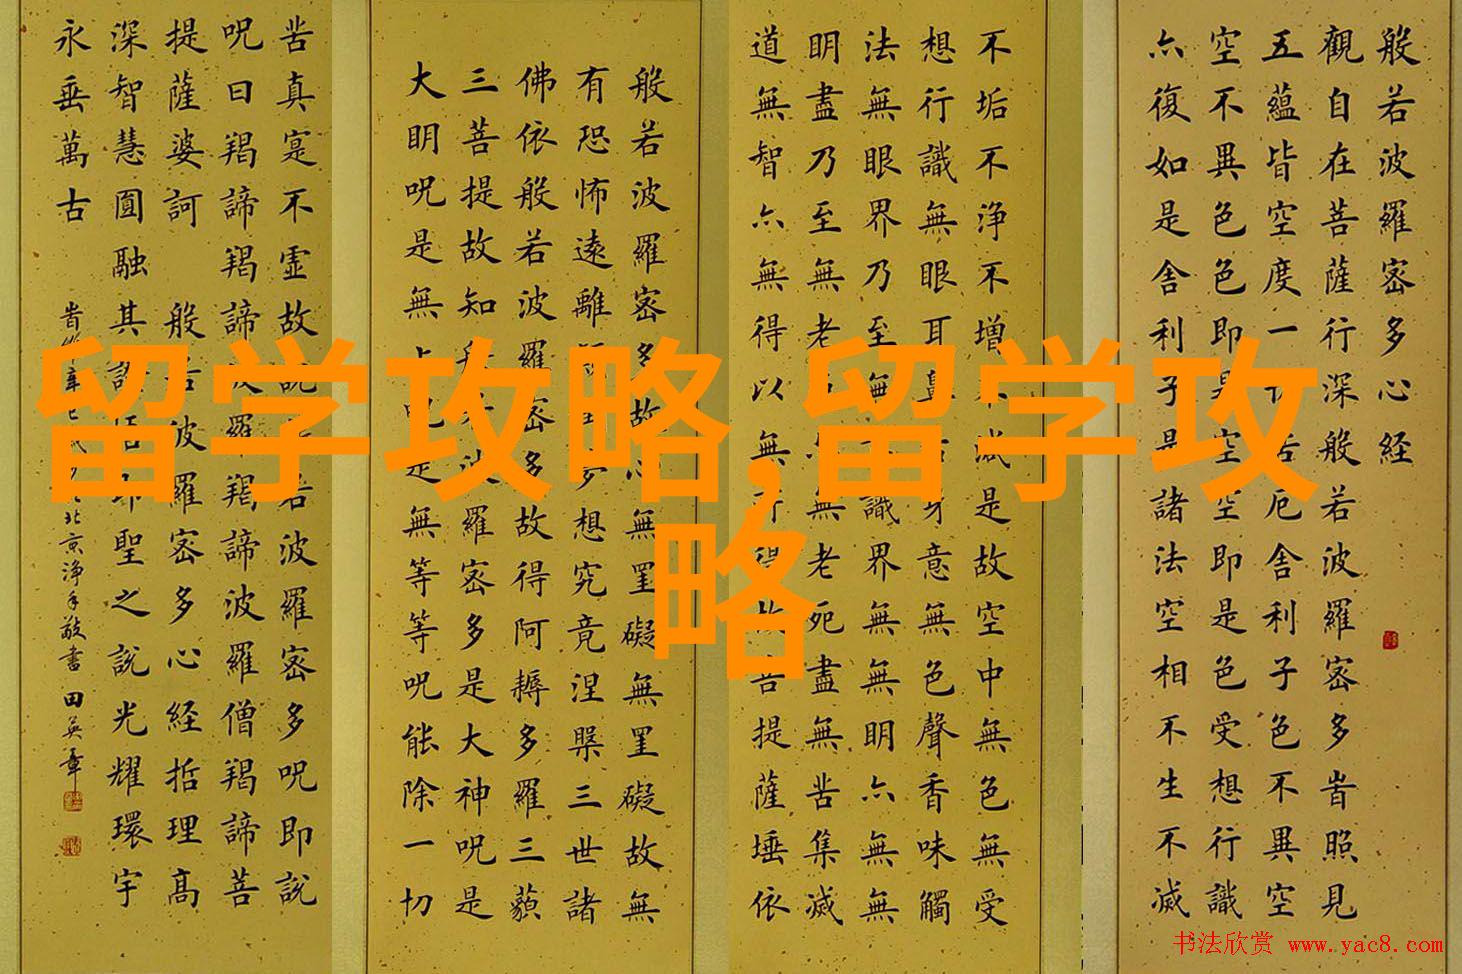 留学攻略,留学攻
略
般若波羅密多心経
觀自在菩薩行深般若波羅密多峕照見
五蘊皆空度一切苦厄舍利子色不異空
空不異色色即是空空即是色受想行識
亦復如是舍利子是諸法空相不生不滅
不垢不淨不增不減是故空中無色無受
想行識無眼耳鼻舌身意無色聲香味觸
法無眼界乃至無意識界無無明亦無無
明盡乃至無老死亦無老死盡無苦集滅
道無智亦無得以無所得故菩提薩埵依
般若波羅密多故心無罣礙無罣礙故無
有恐怖遠離顛倒夢想究竟涅槃三世諸
佛依般若波羅密多故得阿耨多羅三藐
三菩提故知般若波羅密多是大神呪是
大明呪是無上呪是無等等呪能除一切
苦真寔不虛故說般若波羅密多呪即說
呪曰羯諦羯諦波羅羯諦波羅僧羯諦菩
提薩婆訶 般若波羅密多心経括理高
深智慧圓融其聖之說光耀環宇
永垂萬古
北京淨手敬書 田英章
书法欣赏 www.yac8.com